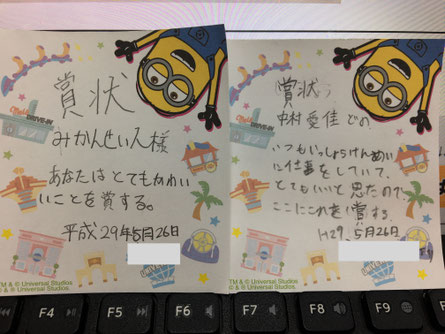 賞状
みかんせい人様
あなたはとてもかわい
いことを賞する。
平成29年5月26日
DRIVE-IN
TM & © Universal Studios
© & ® Universal Studios
賞状
中村愛佳どの
いつもいっしょうけんめい
に仕事をしていて、
とてもいいと思たので、
ここにこれを賞する。
H29. 5月26日
DRIVE-IN
TM & © Universal Studios
© & ® Universal Studios
F4
F5
F6
F7
F8
F9